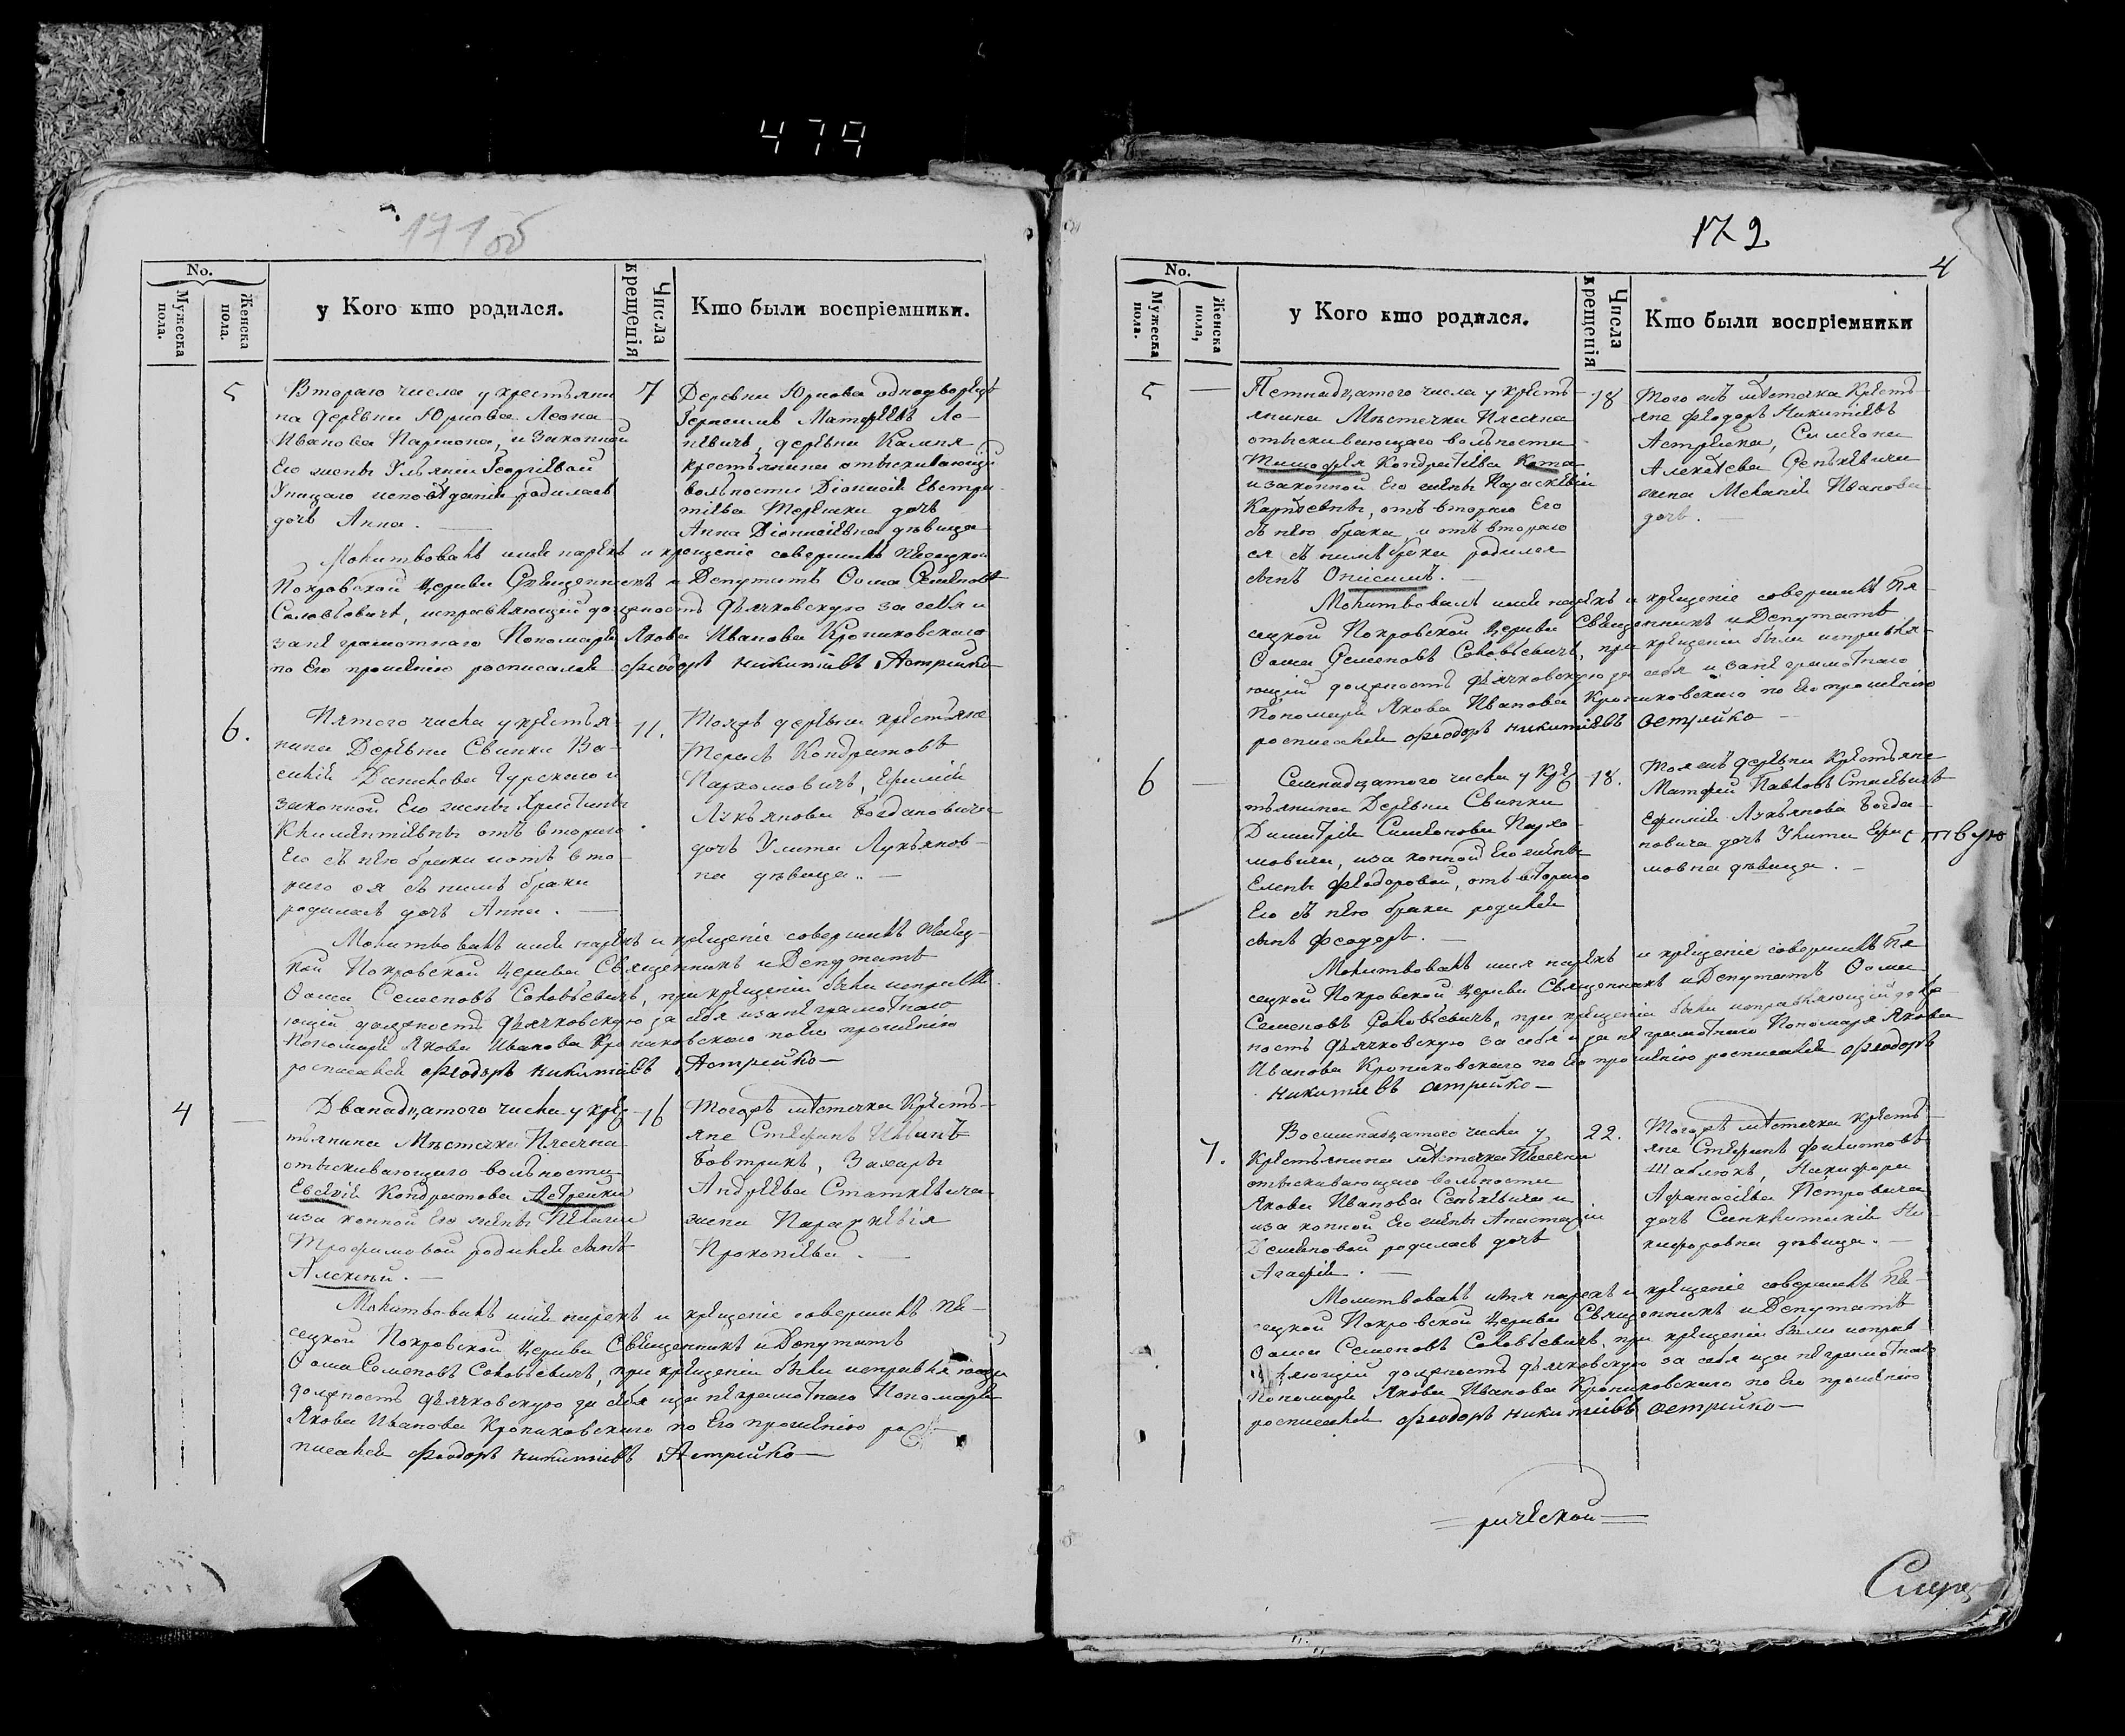 479
171 об
No.
Мужеска пола.
Женска пола.
у Кого кто родился.
Числа крещенія
Кто были воспріемники.
5
Втораго числа у крестьяни
на деревни Юрнова Леона
Иванова Париона, и законной
Его жены Ульяніи Георгіевой
Уніцкаго исповѣданія родилась
дочь Анна. —
7
Деревни Юрнова однодворецъ
Герасимъ Матфеевъ Ле-
невичъ, деревни Камня
крестьянина отыскивающаго
вольности Діонисія Евстра-
тіева Терешки дочь
Анна Діонисіевна дѣвица
Молитвовалъ имя нарекъ и крещеніе совершилъ Плещецкой
Покровской Церкви Священникъ и Депутатъ Ѳома Семеновъ
Соловьевичъ, исправляющій должность дьячковскую за себя и
за не грамотнаго Пономаря Якова Иванова Крониковскаго
по Его прошенію росписался Феодоръ Никитіевъ Астрейко
6.
Пятого числа у крестья-
нина Деревни Свинки Ва-
силія Данилова Гурскаго и
законной Его жены Христины
Климентіевны отъ втораго
Его съ нею брака и отъ вто-
раго ея съ нимъ брака
родилась дочь Анна. —
11.
Тояжъ деревни крестьяне
Тарасъ Кондратовъ
Пархомовичъ, Ефимія
Лукьянова Богдановича
дочь Улита Лукьянов-
на дѣвица. —
Молитвовалъ имя нарекъ и крещеніе совершилъ Плещец-
кой Покровской Церкви Священникъ и Депутатъ
Ѳома Семеновъ Соловьевичъ, при крещеніи были исправля-
ющій должность дьячковскую за себя и за не грамотнаго
Пономаря Якова Иванова Крониковскаго по Его прошенію
росписался Феодоръ Никитіевъ Астрейко —
4
—
Дванадцатого числа у крес-
тьянина Мѣстечка Плесчна
отыскивающаго вольности
Евсевія Кондратова Астрейки
и законной Его жены Пелагеи
Трофимовой родился сынъ
Алексѣй. —
16
Тогожъ мѣстечка Кресть-
яне Стефанъ Ивановъ
Бовтрикъ, Захары
Андреева Статкевича
жена Параскевія
Прокопіева. —
Молитвовалъ имя нарекъ и крещеніе совершилъ Пле-
сецкой Покровской Церкви Священникъ и Депутатъ
Ѳома Семеновъ Соловьевичъ, при крещеніи были исправляющій
должность дьячковскую за себя и за не грамотнаго Пономаря
Якова Иванова Крониковскаго по Его прошенію рос-
писался Феодоръ Никитіевъ Астрейко —
172
4
No.
Мужеска пола.
Женска пола,
у Кого кто родился.
Числа крещенія
Кто были воспріемники
5
—
Петнадцатого числа у кресть-
янина Мѣстечка Плесчна
отыскивающаго вольности
Тимофея Кондратіева Кота
и законной Его жены Параскевіи
Карповны, отъ втораго Его
съ нею брака и отъ втораго
ея съ нимъ брака родился
сынъ Онисимъ. —
18
Того жъ мѣстечка Кресть-
яне Феодоръ Никитіевъ
Астрейка, Симеона
Алексѣева Сенкевича
жена Меланія Иванова
дочь. —
Молитвовалъ имя нарекъ и крещеніе совершилъ Пле-
сецкой Покровской Церкви Священникъ и Депутатъ
Ѳома Семеновъ Соловьевичъ, при крещеніи были исправля-
ющій должность дьячковскую за себя и за не грамотнаго
Пономаря Якова Иванова Крониковскаго по Его прошенію
росписался Феодоръ Никитіевъ Острейко —
6
—
Семнадцатого числа у Крес-
тьянина Деревни Свинки
Димитрія Симеонова Пархо-
мовича, и законной Его жены
Елены Феодоровой, отъ втораго
Его съ нею брака родился
сынъ Феодоръ. —
18.
Тояжъ деревни Крестьяне
Матфей Павловъ Станкевичъ
Ефимія Лукьянова Богда-
новича дочь Улита Ефи-
мовна дѣвица. —
ствую
Молитвовалъ имя нарекъ и крещеніе совершилъ Пле-
сецкой Покровской Церкви Священникъ и Депутатъ Ѳома
Семеновъ Соловьевичъ, при крещеніи были исправляющій долж-
ность дьячковскую за себя и за не грамотнаго Пономаря Якова
Иванова Крониковскаго по Его прошенію росписался Феодоръ
Никитіевъ Острейко —
7.
Восимнадцатого числа у
Крестьянина мѣстечка Плесчна
отыскивающаго вольности
Якова Иванова Сенкевича и
и законной Его жены Анастасіи
Семеновой родилась дочь
Агафія. —
22.
Тогожъ мѣстечка Кресть-
яне Стефанъ Филиповъ
Шаблюкъ, Никифора
Афанасіева Петровича
дочь Синклитикія Ни-
кифоровна дѣвица. —
Молитвовалъ имя нарекъ и крещеніе совершилъ Пле-
сецкой Покровской Церкви Священникъ и Депутатъ
Ѳома Семеновъ Соловьевичъ, при крещеніи были исправ
ляющій должность дьячковскую за себя и за не грамотнаго
Пономаря Якова Иванова Крониковскаго по Его прошенію
росписался Феодоръ Никитіевъ Острейко —
рической